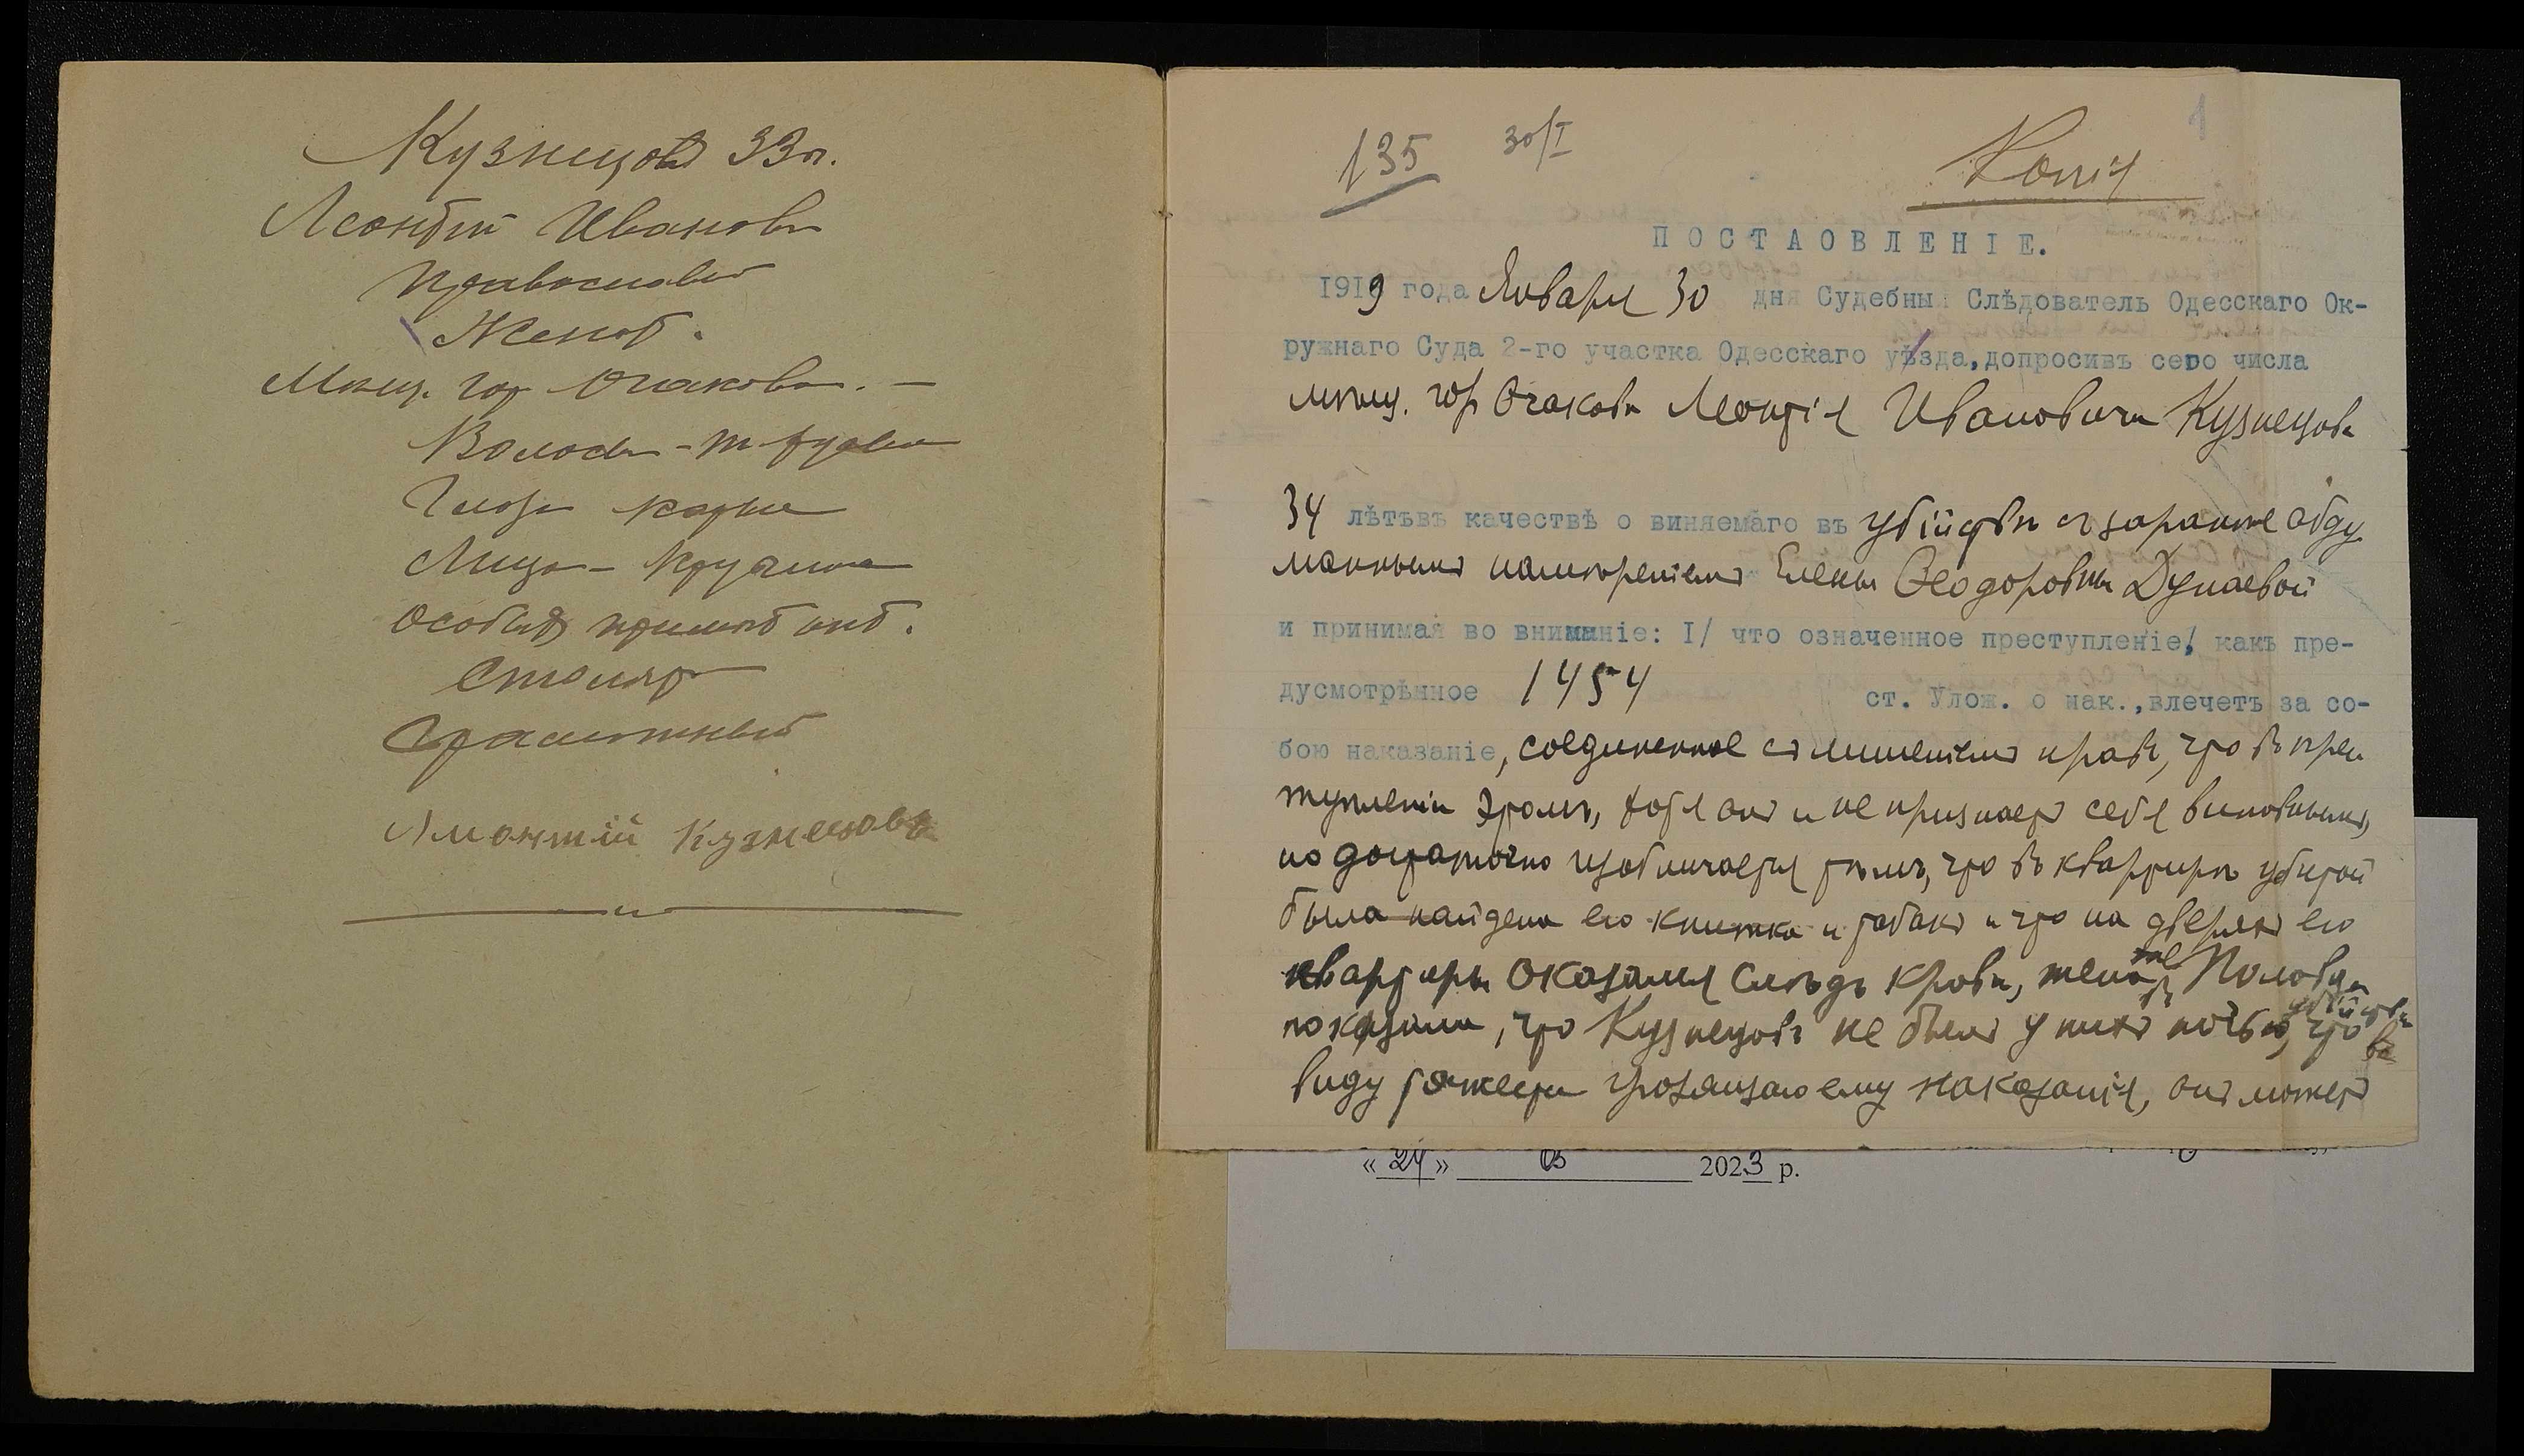 Кузнецовъ 33 л.
Леонтій Ивановъ
Православн
Женат.
Мѣщ. гор Очакова. —
Волосы - т-русые
Глаза карие
Лицо - круглое
Особыхъ примѣт нѣт.
Столяр
Грамотный
Лмонтій Кузнецовъ
135
30/I
Копія
1
ПОСТАОВЛЕНІЕ.
1919 года Января 30 дня Судебны Слѣдователь Одесскаго Ок-
ружнаго Суда 2-го участка Одесскаго уѣзда, допросивъ сего числа
мѣщ. гор Очакова Леонтія Ивановича Кузнецова
34 лѣтъвъ качествѣ о виняемаго въ убійствѣ съ заранѣе обду
маннымъ намѣреніемъ Елены Ѳеодоровны Дунаевой
и принимая во вниманіе: I/ что означенное преступленіе, какъ пре-
дусмотрѣнное 1454 ст. Улож. о нак., влечетъ за со-
бою наказаніе, соединенное съ лишеніемъ правъ, что въ прес
туплении этомъ, хотя онъ и не признаетъ себя виновнымъ,
но достаточно изобличается тѣмъ, что въ квартирѣ убитой
была найдена его книжка и табакъ и что на дверяхъ его
квартиры оказался слѣдъ крови, жена же Половца
показала, что Кузнецовъ не былъ у нихъ въ ночь убійства, что въ
виду тяжести грозящаго ему наказанія, онъ можетъ
« 24 » 03 2023 р.